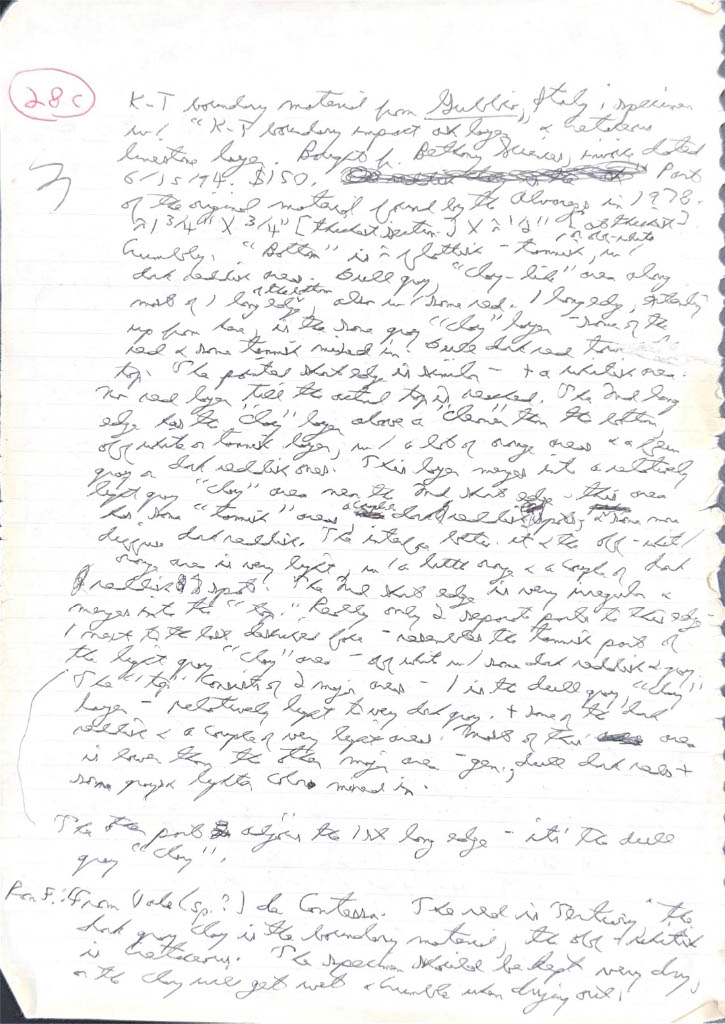 28c
K-T boundary material from Gubbio, Italy; specimen
w/ "K-T boundary impact ash layer, & Cretaceous
limestone layer. Bought f. Bethany Sciences, invoice dated
6/15/94. $150. Part
of the original material found by the Alvarezs in 1978.
≈1 3/4" X 3/4" [thickest section] X ≈ 1/2" [at thickest]
Crumbly. "Bottom" is ≈ flattish - tannish, w/ off-white
dark reddish areas. Dull gray, "clay-like" area along
most of 1 long edge of the bottom, also w/ some red. 1 long edge,
up from here, is the same gray "clay" layer - some of the
red & some tannish mixed in. Dull dark red
top. The pointed short edge is similar - + a whitish area.
No red layer till the actual top is reached. The 2nd long
edge has the "clay" layer above a "cleaner" than the bottom,
off white or tannish layer, w/ a lot of orange areas & a few
gray or dark reddish ones. This layer merges into a relatively
light gray "clay" area near the 2nd short edge - this area
has some "tannish" areas, a couple dark reddish spots, & some more
diffuse dark reddish. The interface betw. it & the off-white/
orange area is very light, w/ a little orange & a couple of dark
reddish spots. The 2nd short edge is very irregular &
merges into the "top." Really only 2 separate parts to this edge -
1 next to the last described face - resembles the tannish parts of
the light gray "clay" area - off white w/ some dark reddish & gray.
The "top" consists of 2 major areas - 1 is the dull gray, "clay"
layer - relatively light to very dark gray, + some of the dark
reddish & a couple of very light areas. Most of this area
is lower than the other major area - gen., dull dark reds +
some grayish lighter colors mixed in.
The other part adjoins the 1st long edge - it's the dull
gray "clay".
Ron F.: From Vale (sp.?) de Contessa. The red is Tertiary the
dark gray clay is the boundary material, the off-whitish
is Cretaceous. The specimen should be kept very dry,
or the clay will get wet & crumble when drying out.